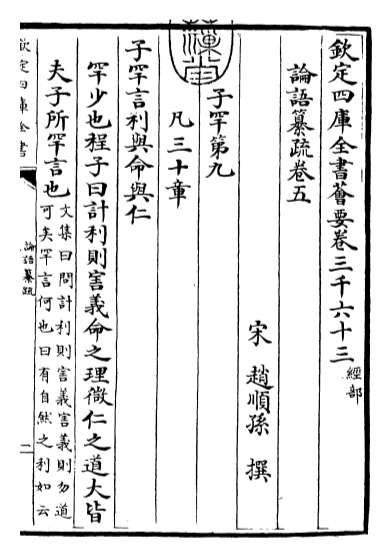 欽定四庫全書薈要卷三千六十三 經部
論語纂疏卷五
宋 趙順孫 撰
子罕第九
凡三十章
子罕言利與命與仁
罕少也程子曰計利則害義命之理微仁之道大皆
夫子所罕言也
文集曰問計利則害義害義則勿道
可矣罕言何也曰有自然之利如云
欽定四庫全書
論語纂疏